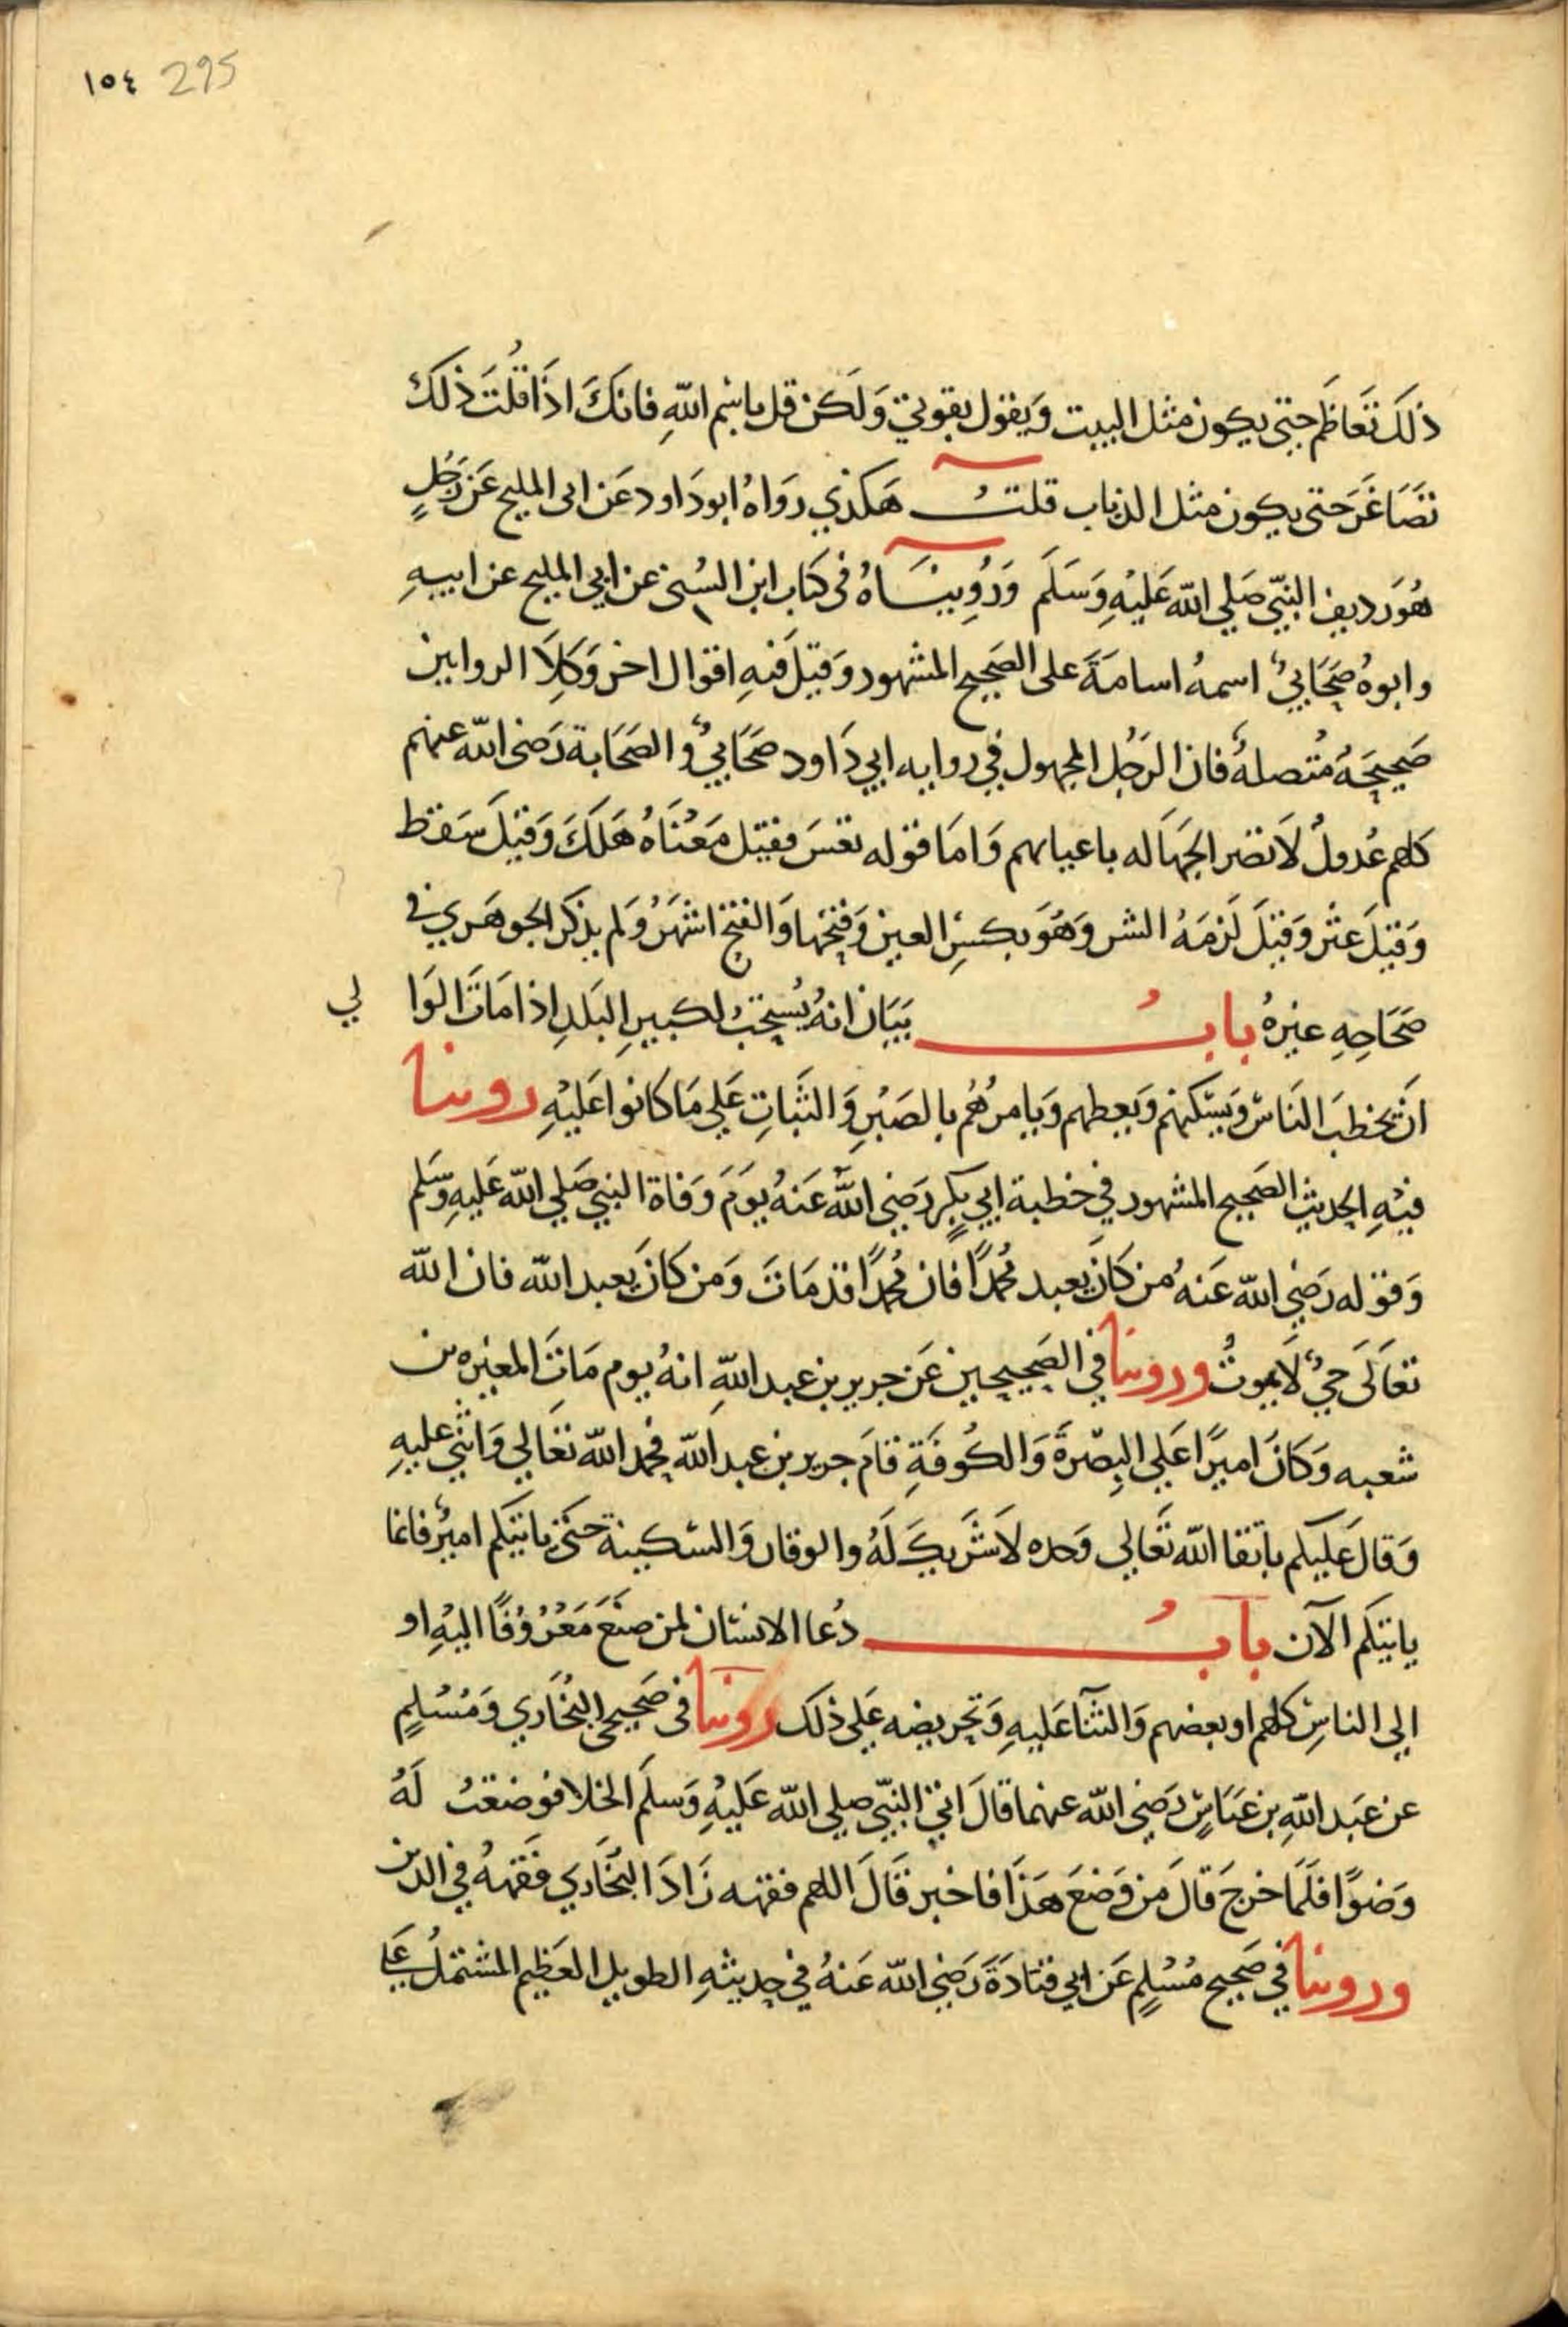 ١٥٤ 295
ذلَكَ تَعَاظَم حتى يكون مثل البيت وَيقول بقوتي وَلَكن قل باسْم اللهِ فانكَ اذَا قُلتَ ذلكَ
تصَاغَرَ حتى يكون مثل الذباب قلتُ هَكذي روَاهُ ابو دَاود عَن ابى المليح عَن رَجُلٍ
هُوَ رديف النبّي صَلي الله عَليْهِ وَسَلَم وَرُوِيناهُ فى كتاب ابن السُني عن ابي المليح عن ابيهِ
وابوهُ صَحَابيٌ اسمهُ اسامَةَ على الصَحيح المشهور وَقيلَ فيهِ اقوال اخر وَكِلاَ الروايين
صَحيحَهُ مُتصلهُ فان الرَجُل المجهول في روايه ابي دَاود صَحَابيٌ والصَحَابة رَضى الله عنهم
كلهم عُدولٌ لاَ تضر الجهَاله باعيانهم وَامَا قوله تعسَ فقيل مَعْنَاهُ هَلكَ وَقيلَ سَقط
وَقيلَ عثر وَقيلَ لَزمَهُ الشر وَهُوَ بكسْرِ العين وَفتحها وَالفتح اشهَرُ وَلم يذكر الجوهَري في
صَحَاحِهِ غيرهُ بابُ بَيَان انهُ يُستحَبُ لكبيرِ البَلدِ اذا مَاتَ الوَا لي
اَن يخطبَ النَاسَ وَيسَكنهم وَيعظهم وَيامرُهُم بالصَبْرِ وَالثَبَاتِ عَلي مَا كانوا عَليْهِ روينا
فيْهِ الحديثَ الصَحيح المشهور في خطبة ابي بكرٍ رَضي اللهُ عَنهُ يوَمَ وَفاة النبي صَلي الله عَليهِ وسَلم
وَقوله رَضي الله عَنهُ من كَانَ يعبد مُحمدًا فان مُحمدًا قد مَاتَ وَمن كَانَ يعبد الله فان الله
تعَالَى حيٌ لاَ يموتُ وروينا في الصَحيحين عَن جرير بن عبد اللهِ انهُ يوم مَاتَ المغيره بن
شعبه وَكَانَ اميرًا عَلي البِصْرةَ وَالكُوفَةِ قامَ جرير بن عبد الله فحمد الله تعَالي وَاثني عليهِ
وَقالَ عَليكم باتقا الله تَعَالي وَحده لاَ شَريكَ لَهُ والوقار وَالسَكينة حتى ياتيكم اميرٌ فانما
ياتيكم الآن بابُ دُعا الانسَان لمن صنَعَ مَعْرُوْفًا اليْهِ او
الي الناسِ كلهم او بعضهم وَالثنَآ عَليهِ وَتحريضه عَلي ذلكَ روينا في صَحيحى البُخَاري وَمُسْلمٍ
عن عبَد اللهِ بن عبَاسٍ رَضي الله عنهما قالَ اتي النبّي صلي الله عَليْهِ وَسلَم الخلا فوضعتُ لَهُ
وَضوًا فلَمَا خرجَ قالَ مَن وَضعَ هَذَا فاخبر قَالَ اللهم فقهه زَادَ البُخَاري فَقههُ في الدين
وروينا في صَحيح مُسْلمٍ عَن ابي قتادَةَ رَضي الله عَنهُ في حديثهِ الطويل العَظيم المشتملُ عَلي